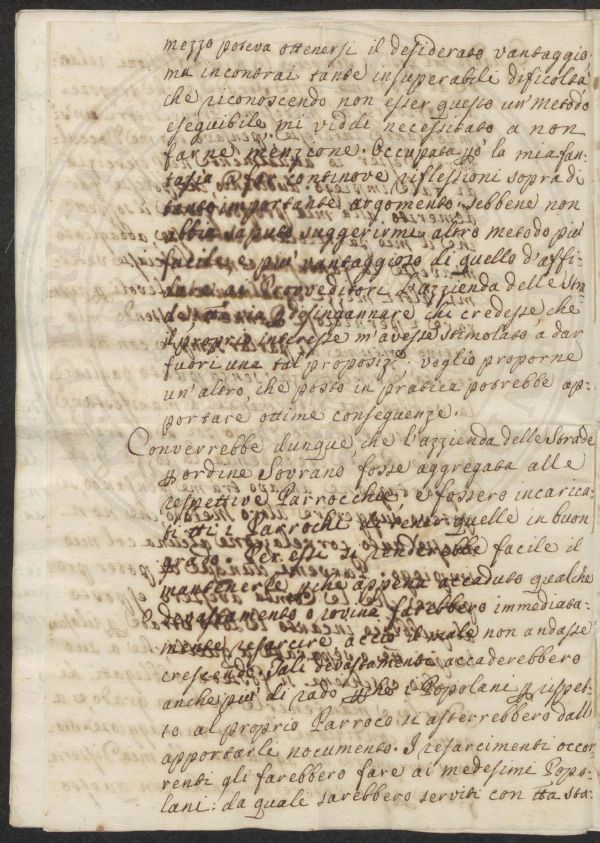 mezzo poteva ottenersi il desiderato vantaggio
ma incontrai tante insuperabili dificoltà,
che riconoscendo non esser questo un' metodo
eseguibile, mi viddi necessitato a non
farne menzione. Occupata pò la mia fan-
tasia p far continove riflessioni sopra di
tanto importante argomento, sebbene non
abbia saputo suggerirmi altro metodo più
facile, e più vantaggioso di quello d'affi-
dare ai Provveditori l'azzienda delle Stra-
de, tta via p disingannare chi credesse che
il proprio interesse m'avesse stimolato à dar
fuori una tal proposize, voglio proporne
un'altro, che posto in pratica potrebbe ap-
portare ottime conseguenze.
Converrebbe dunque, che l'azzienda delle Strade
p ordine Sovrano fosse aggregata alle
respettive Parrocchie, e fossero incarica-
ti tti i Parrochi p tener quelle in buon
grado. Per essi si renderebbe facile il
mantenerle, pche appena accaduto qualche
devastamento o rovina farebbero immediata-
mente resarcire, acciò il male non andasse
crescendo. Tali devastamenti accaderebbero
anche più di rado pche i Popolani p rispet-
to al proprio Parroco si asterrebbero dall'
apportarle nocumento. I resarcimenti occor-
renti gli farebbero fare ai medesimi Popo-
lani: da quale sarebbero serviti con tta sta-